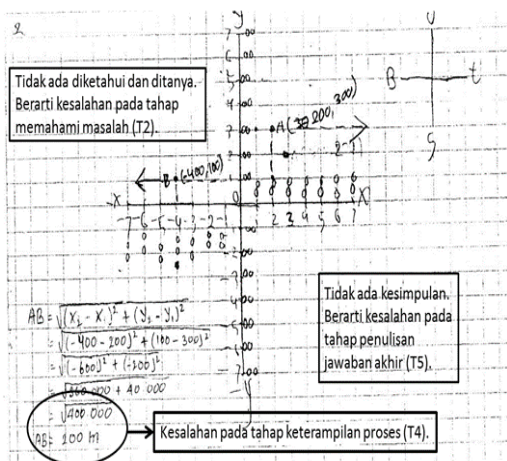 2
y
U
B
t
S
Tidak ada diketahui dan ditanya.
Berarti kesalahan pada tahap
memahami masalah (T2).
B (-400,100)
-X
X
-7 -6 -5 -4 -3 -2 -1
0
1 2 3 4 5 6 7
Tidak ada kesimpulan.
Berarti kesalahan pada
tahap penulisan
jawaban akhir (T5).
AB = √(X₂ - X₁)² + (Y₂ - Y₁)²
= √(-400 - 200)² + (100 - 300)²
= √(-600)² + (-200)²
= √360.000 + 40.000
= √400.000
AB = 200 m
Kesalahan pada tahap keterampilan proses (T4).